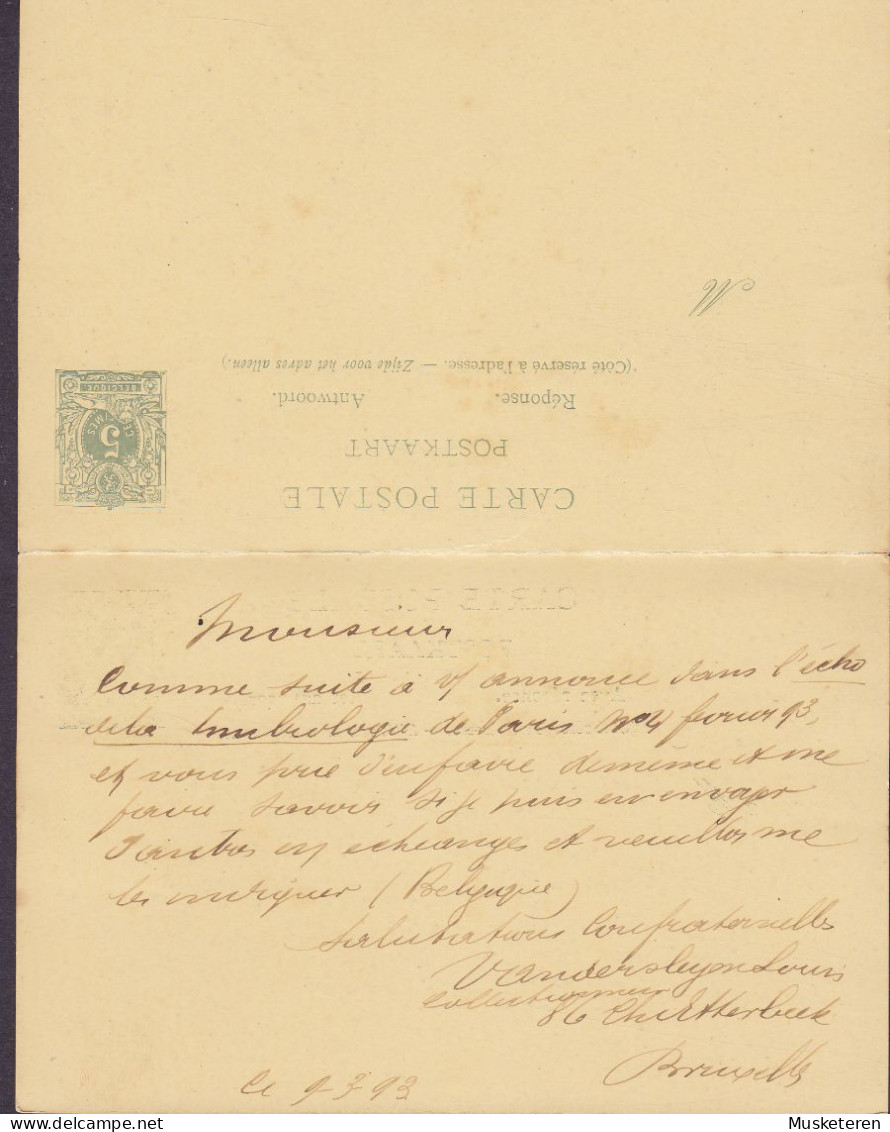 M
(Côté réservé à l'adresse. — Zijde voor het adres alleen.)
Réponse. Antwoord.
POSTKAART
CARTE POSTALE
BELGIQUE
5
CENTIMES
CARTE POSTALE
Monsieur
Comme suite à v/ annonce dans l'écho
de la timbrologie de Paris No 4 fevrier 93,
et vous prie d'en faire de même et me
faire savoir si je puis en envoyer
d'autres en échanges et veuillez me
les indiquer (Belgique)
Salutations Confraternelles
Vandersleyen Louis
Collectionneur
86 Ch Etterbeek
Bruxelles
Le 9-3-93
Musketeren